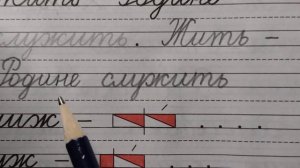 жить Родине
служить. Жить –
Родине служить
шиж –
иж –